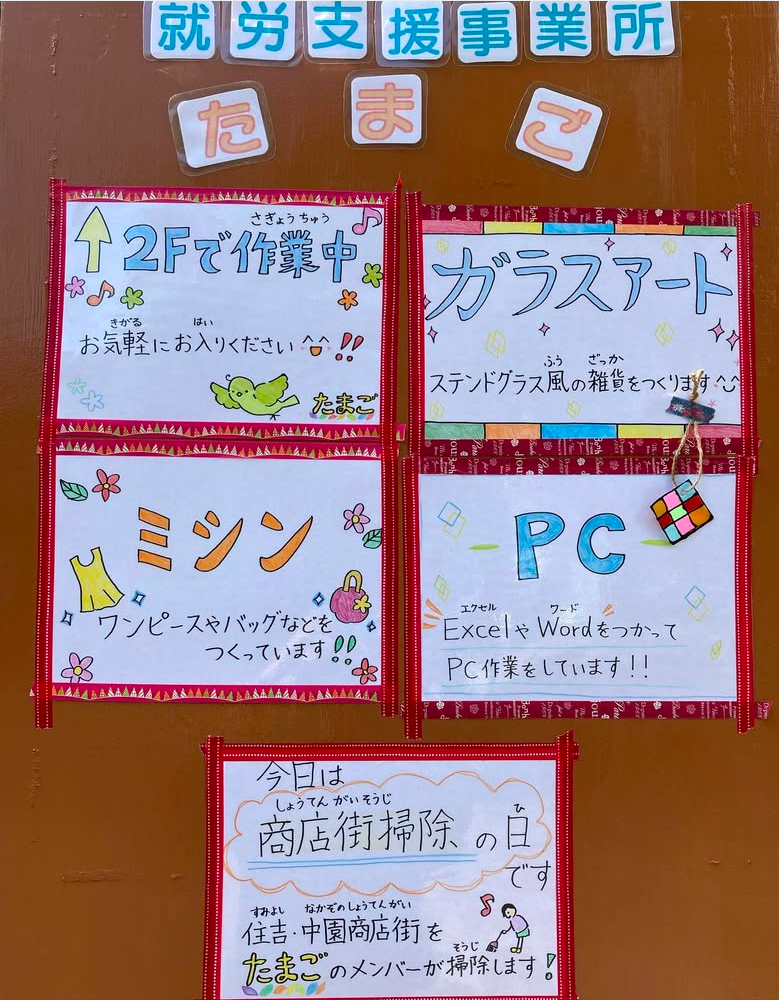 就労支援事業所
たまご
さぎょうちゅう
2Fで作業中
きがる はい
お気軽にお入りください ^^ !!
たまご
ガラスアート
ふう ざっか
ステンドグラス風の雑貨をつくります^^
ミシン
ワンピースやバッグなどを
つくっています!!
PC
エクセル ワード
ExcelやWordをつかって
PC作業をしています!!
今日は
しょうてん がいそうじ ひ
商店街掃除の日
です
すみよし なかぞのしょうてんがい
住吉・中園商店街を
そうじ
たまごのメンバーが掃除します!